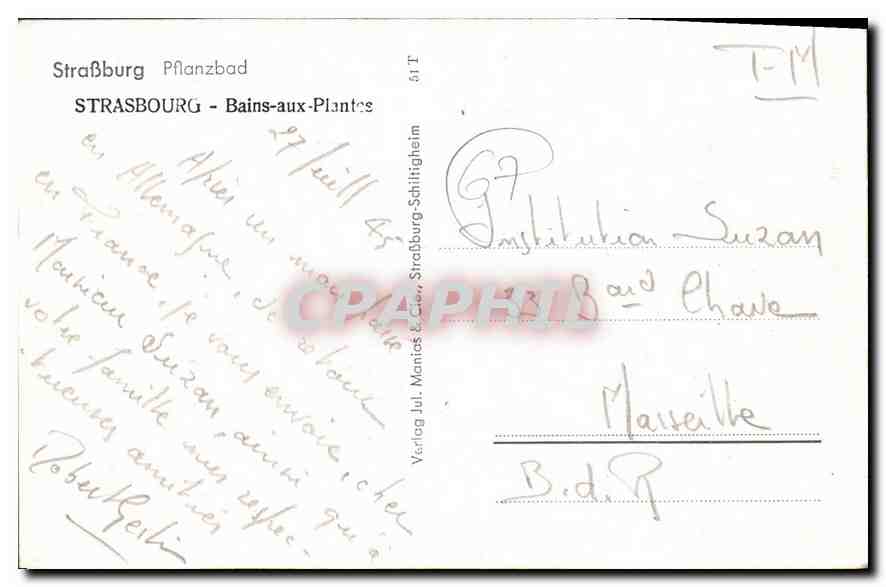 Straßburg Pflanzbad
STRASBOURG - Bains-aux-Plantes
27 juill 45
Après un mois passé
en Allemagne, de retour
en France, je vous envoie, cher
Monsieur Suzan, ainsi qu'à
votre famille mes respec-
tueuses amitiés
Robert
51 T
Verlag Jul. Manias & Cie., Straßburg-Schiltigheim
CPAPHIL
F-M
67
Institution Suzan
Bard Chave
Marseille
B.d.R